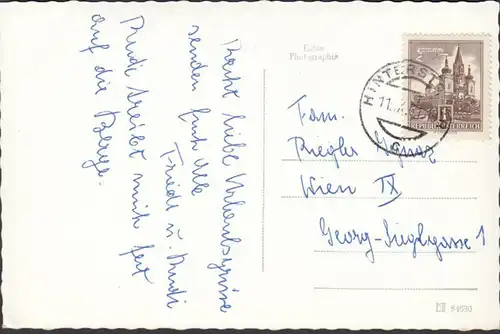 Recht liebe Urlaubsgrüsse
senden Euch alle
Friedl u. Rudi
Rudi treibt mich fest
auf die Berge.
Echte
Photographie
HINTERST
11.
REPUBLIK ÖSTERREICH
Fam.
Riegler Ignaz
Wien IX
Georg-Sieglgasse 1
64690